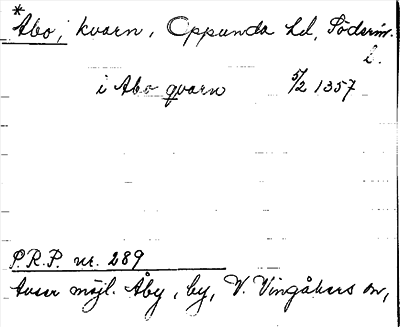 *Abo, kvarn, Oppunda hd, Söderm.
l.
i Abo qvarn 5/2 1357
P.R.P. nr. 289
avser möjl. Åby, by, V. Vingåkers sn,